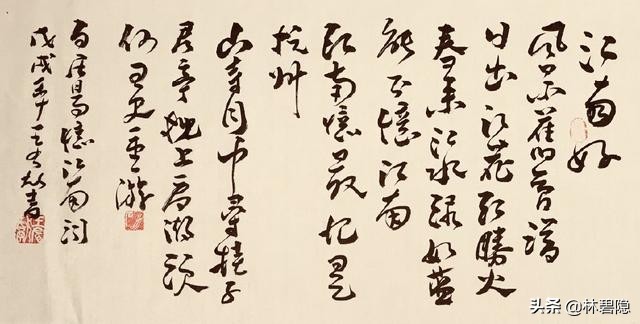 江南好
風景舊曾諳
日出江花红勝火
春来江水緑如蓝
能不憶江南
江南憶最忆是
杭州
山寺月中尋桂子
郡亭枕上看潮頭
何日更重游
白居易憶江南词
戊戌年
头条 @林碧隐